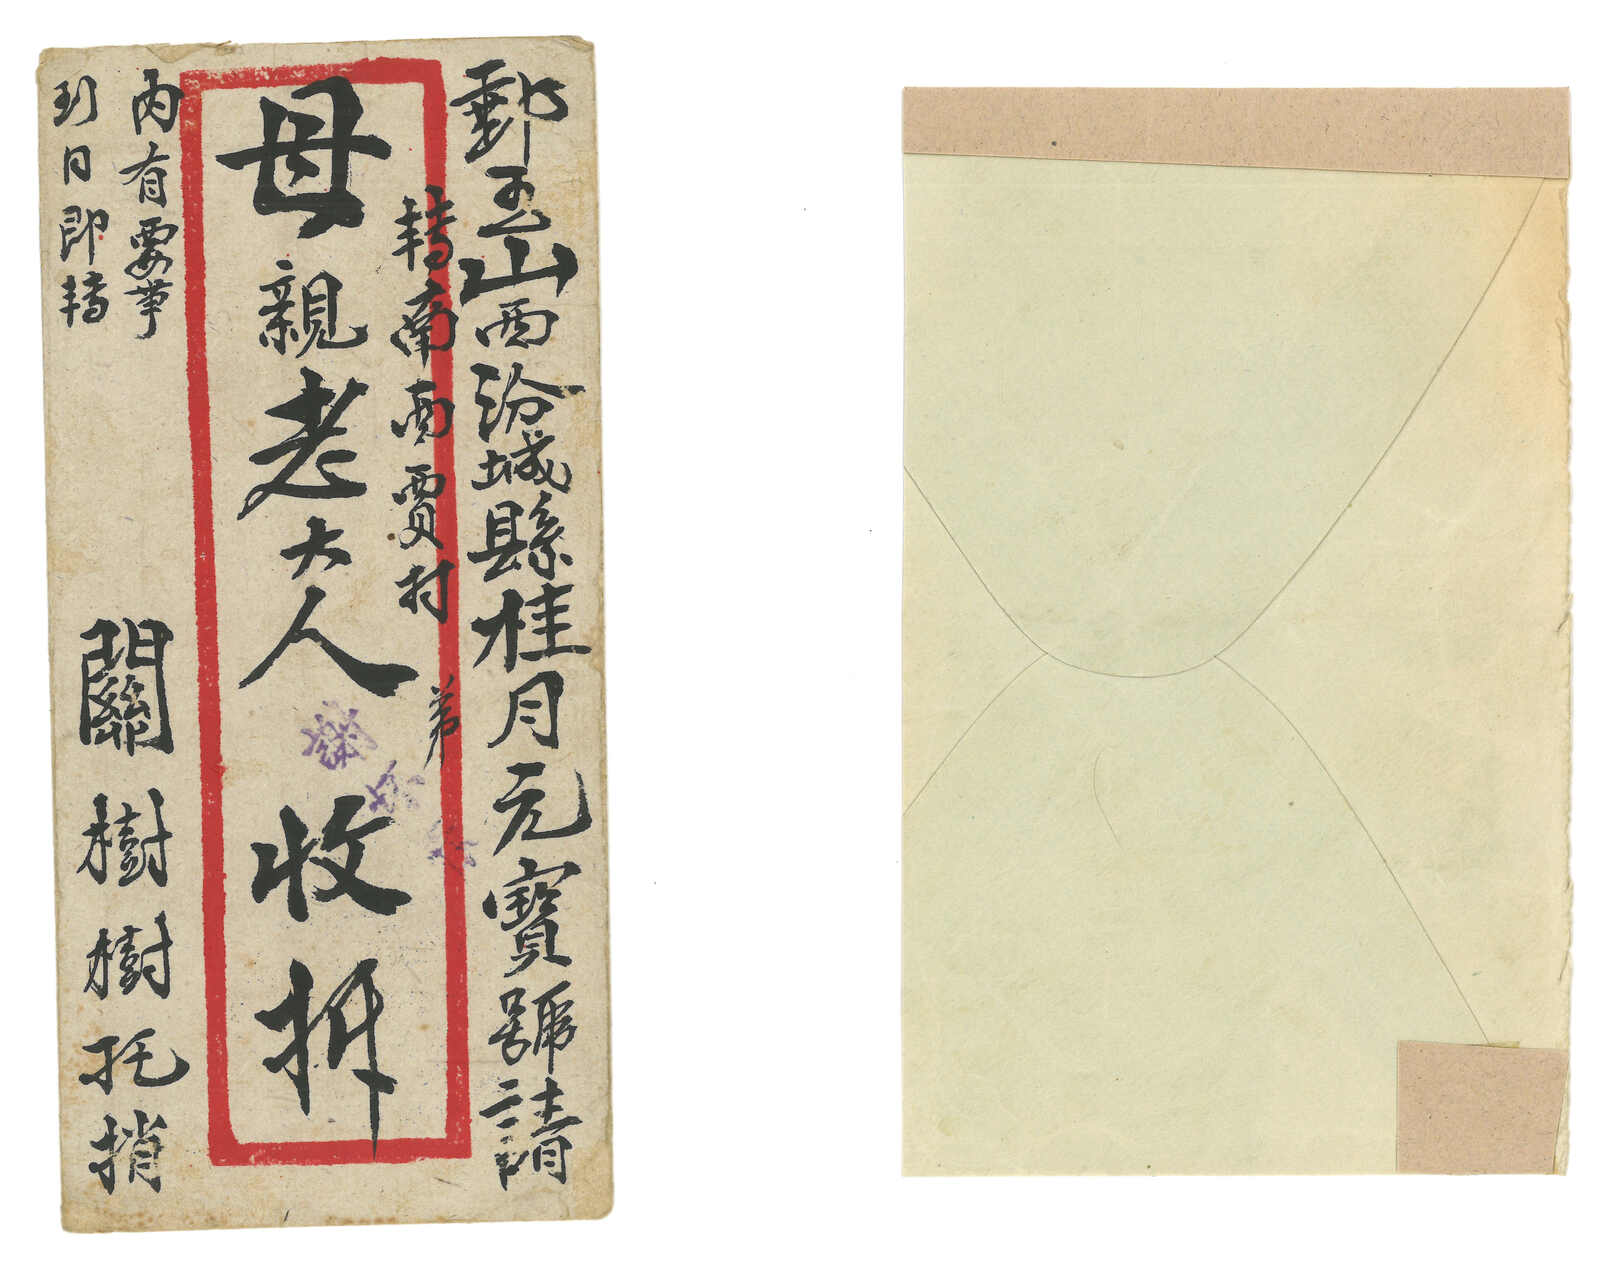 郵至山西汾城縣桂月元寶號請
轉南西賈村
母親老大人收拆
內有要事
到日即轉
關樹樹托捎